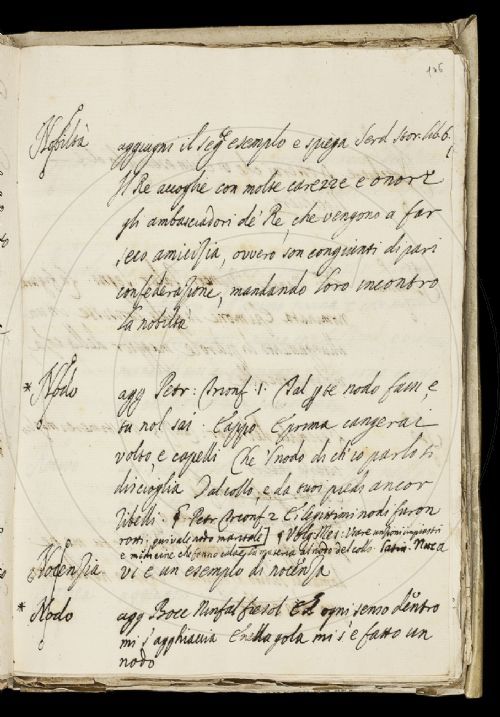 126
Nobiltà aggiugni il seg.te esemplo e spiega Serd. stor. lib. 6.
Il Re accoglie con molte carezze e onori
gli ambasciadori de' Re, che vengono a far
seco amicizia, ovvero son congiunti di pari
confederazione, mandando loro incontro
la nobiltà
* Nodo agg Petr: Trionf: 1: Dal qste nodo fassi, e
tu nol sai: E prima cangerai
volto, e capelli Che 'l nodo di ch'io parlo ti
discioglia Dal collo, e da tuoi piedi ancor
ribelli: Petr Trionf 2 E i legittimi nodi furon
rotti: qui vale nodo maritale
e medicine che fanno
Nocenzia vi è un esempio di nocenza
* Nodo agg Bocc Ninfal fiesol Ed ogni senso dentro
mi s'agghiaccia E nella gola mi s'è fatto un
nodo